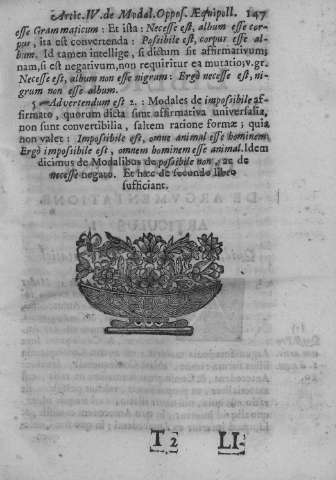 Artic. IV. de Modal. Oppos. Æquipoll. 147
esse Grammaticum : Et ista : Necesse est, album esse cor-
pus, ita est convertenda : Possibile est, corpus esse al-
bum. Id tamen intellige, si dictum sit affirmativum;
nam, si est negativum, non requiritur ea mutatio, v. gr.
Necesse est, album non esse nigrum : Ergò necesse est, ni-
grum non esse album.
5 Advertendum est 2. : Modales de impossibile af-
firmato, quorum dicta sunt affirmativa universalia,
non sunt convertibilia, saltem ratione formæ; quia
non valet : Impossibile est, omne animal esse hominem;
Ergò impossibile est, omnem hominem esse animal. Idem
dicimus de Modalibus de possibile non, ac de
necesse negato. Et hæc de secundo libro
sufficiant.
T 2 LI-